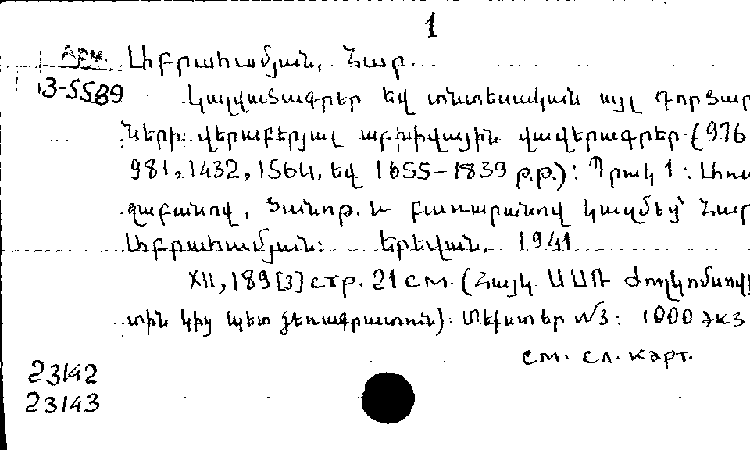 1
Арм. Աբրահամյան, Նար.
3-5589
Կալվածագրեր եվ տնտեսական այլ գործար
ների վերաբերյալ արխիվային վավերագրեր (976
981, 1432, 1564, եվ 1655-1839 թ.թ.): Պրակ 1: Առա
ջաբանով, ծանոթ. և բառարանով կազմեց՝ Նար
Աբրահամյան: Երեվան. 1941
XII, 189 [3] стр. 21 см. (Հայկ. ՍՍՌ Ժողկոմսովե
տին կից պետ ձեռագրատուն). Տեքստեր №3: 1000 экз
см. сл. карт.
23142
23143